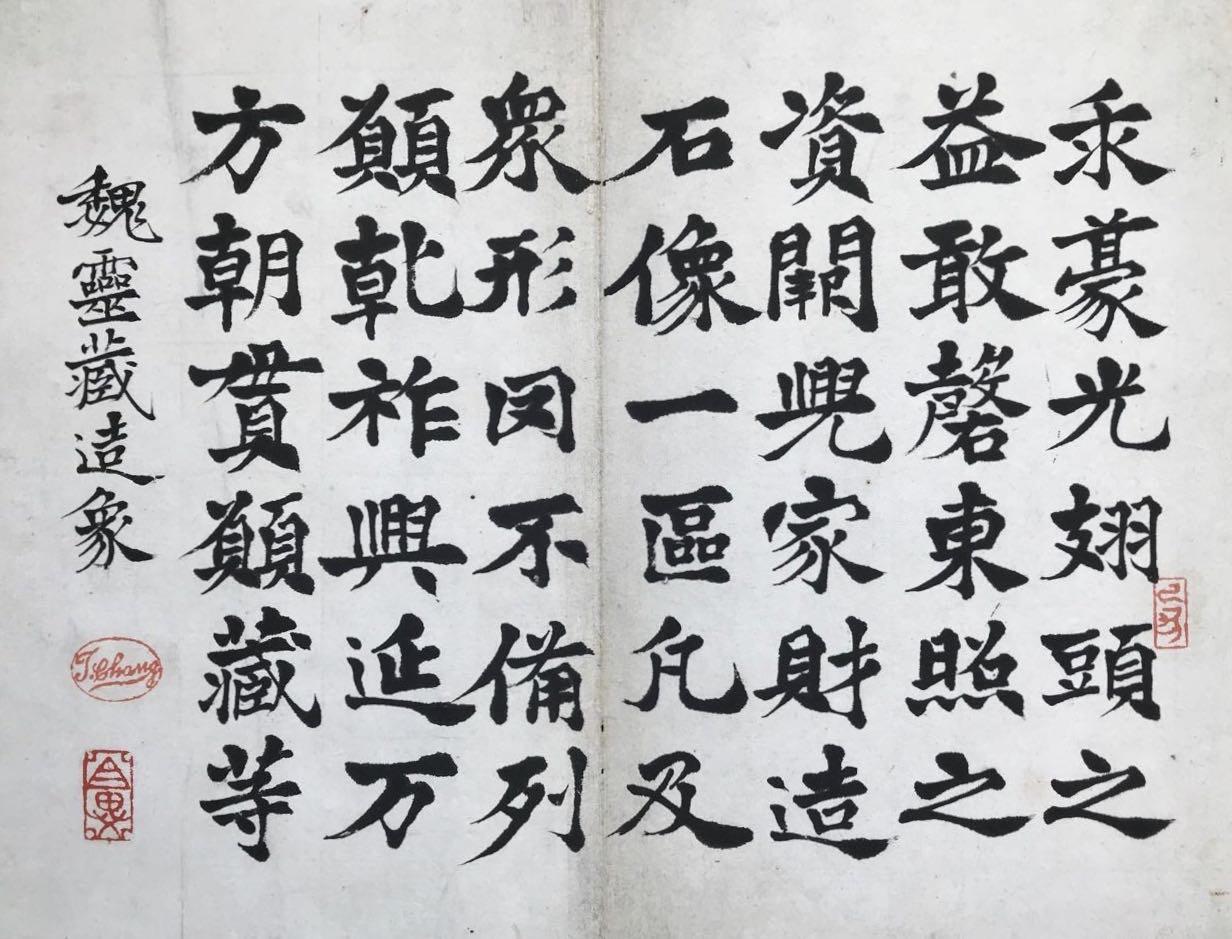 乑豪光翅頭之
益敢磬東照之
資闕興家財造
石像一區凡及
衆形罔不備列
願乹祚興延万
方朝貫願藏等
魏靈藏造象
T.Chang